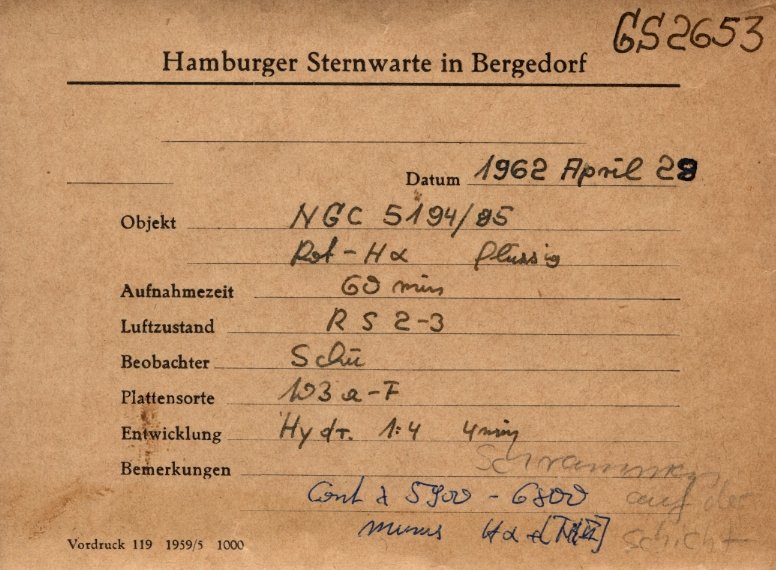 GS2653
Hamburger Sternwarte in Bergedorf
Datum 1962 April 28
Objekt NGC 5194/95
Rot-Hα flüssig
Aufnahmezeit 60 min
Luftzustand R S 2-3
Beobachter Schü
Plattensorte 103 a-F
Entwicklung Hydr. 1:4 4 min
Bemerkungen
Cont λ 5900 - 6800 auf der
minus Hα Schicht
Vordruck 119 1959/5 1000